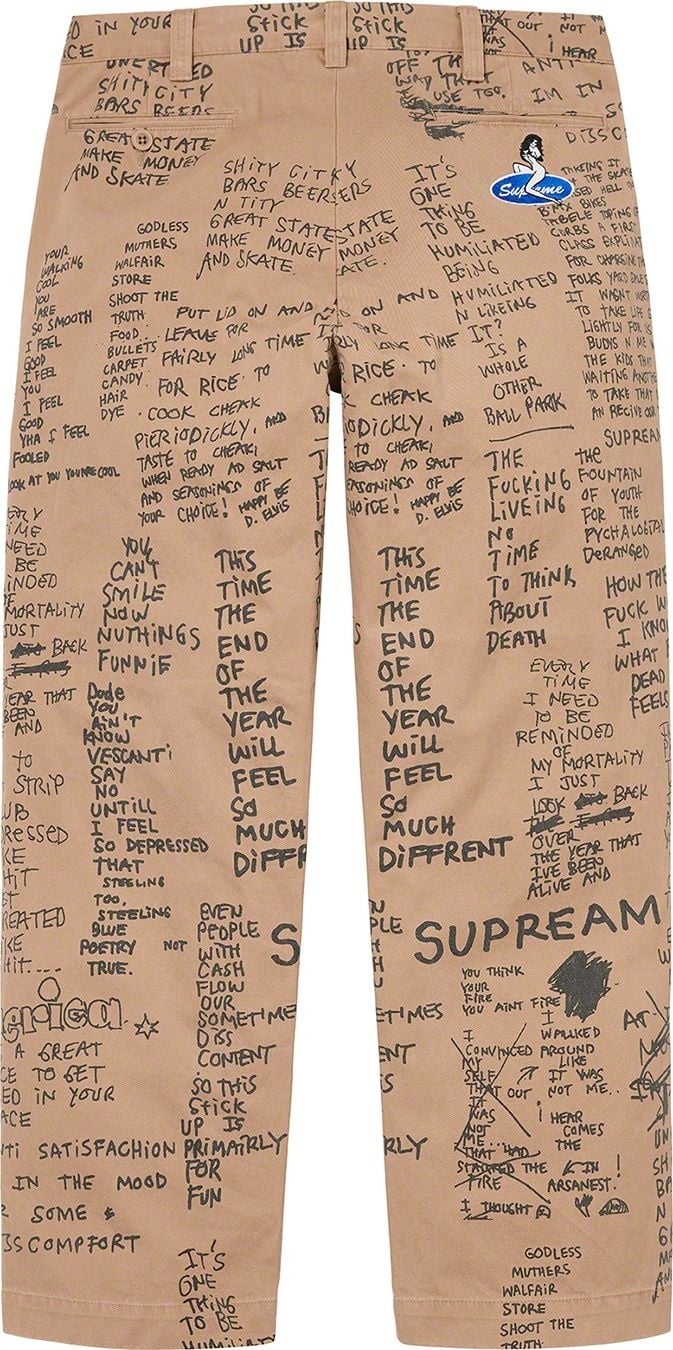 D IN YOUR
ACE
SO THIS
STICK
UP IS
THAT OUT
NOT
WAS
NOT
I HEAR
OFF THAT
USE TOO.
ANTI
IM IN
SHITY CITY
BARS BEERS
GREAT STATE
MAKE MONEY
AND SKATE
SHITY CITY
BARS BEERSERS
N TITY
GREAT STATESTATE
MAKE MONEY MONEY
AND SKATE. ATE.
IT'S
ONE
THING
TO BE
HUMILIATED
BEING
HUMILIATED
N LIKEING
IT?
IS A
WHOLE
OTHER
BALL PARK
Supreme
TAKEING IT
THE SKATE
USED HELL O
BMX BIKES
TOPING OF
CURBS A FIRST
CLASS EXPLINAT
FOR CHARGING TH
FOLKS YARD SALES
IT WASN'T WORT
TO TAKE LIFE S
LIGHTLY FOR
BUDYS N ME
THE KIDS THAT
WAITING ANOTHE
TO TAKE THAT
AN RECIVE OUR
SUPREAM
YOUR
WALKING
COOL
YOU
ARE
SO SMOOTH
I FEEL
GOOD
I FEEL
YOU
I FEEL
GOOD
YHA I FEEL
FOOLED
LOOK AT YOU YOU'RE COOL
GODLESS
MUTHERS
WALFAIR
STORE
SHOOT THE
TRUTH
FOOD
BULLETS
CARPET
CANDY
HAIR
DYE
PUT LID ON AND
LEAVE FOR
FAIRLY LONG TIME
FOR RICE. TO
COOK CHEAK
PIERIODICKLY, AND
TASTE TO CHEAK,
WHEN READY AD SALT
AND SEASONINGS OF
YOUR CHOICE! HAPPY BE
D. ELVIS
D ON AND
LONG TIME
RICE. TO
CHEAK
IODICKLY, AND
TO CHEAK,
READY AD SALT
SEASONINGS OF
HOICE! HAPPY BE
D. ELVIS
THE
FUCKING
LIVEING
NO
TIME
TO THINK
ABOUT
DEATH
THE
FOUNTAIN
OF YOUTH
FOR THE
PYCHALOGITAL
DERANGED
HOW THE
FUCK W
I KNOW
WHAT
DEAD
FEELS
EVERY
TIME
NEED
BE
MINDED
MORTALITY
JUST
BACK
YEAR THAT
BEEN
AND
YOU
CAN'T
SMILE
NOW
NUTHINGS
FUNNIE
Dude
YOU
AIN'T
KNOW
VESCANTI
SAY
NO
UNTILL
I FEEL
SO DEPRESSED
THAT
STEELING
TOO.
STEELING
BLUE
POETRY NOT
TRUE.
THIS
TIME
THE
END
OF
THE
YEAR
WILL
FEEL
SO
MUCH
DIFFR
THIS
TIME
THE
END
OF
THE
YEAR
WILL
FEEL
SO
MUCH
DIFFRENT
EVERY
TIME
I NEED
TO BE
REMINDED
OF
MY MORTALITY
I JUST
LOOK BACK
OVER
THE YEAR THAT
I'VE BEEN
ALIVE AND
TO
STRIP
UB
RESSED
KE
HIT
ST
REATED
IKE
HIT....
erica
A GREAT
CE TO GET
ED IN YOUR
ACE
NTI SATISFACHION
IN THE MOOD
R SOME
ISSCOMPFORT
EVEN
PEOPLE
WITH
CASH
FLOW
OUR
SOMETIME
DISS
CONTENT
SO THIS
STICK
UP IS
PRIMAIRLY
FOR
FUN
S
IT'S
ONE
THING
TO BE
HUMILIAT
PLE
ETIMES
ENT
RLY
SUPREAM
YOU THINK
YOUR
FIRE
YOU AINT FIRE
I
CONVINCED
MY
SELF
THAT OUT
IT
WAS
NOT
ME...
THAT HAD
STARTED THE
FIRE
I THOUGHT
I
WALLKED
AROUND
LIKE
IT WAS
NOT ME..
I HEAR
COMES
THE
IN !
ARSANEST.
AT
UN
SH
BA
N
G
MA
AN
GODLESS
MUTHERS
WALFAIR
STORE
SHOOT THE
TRUTH